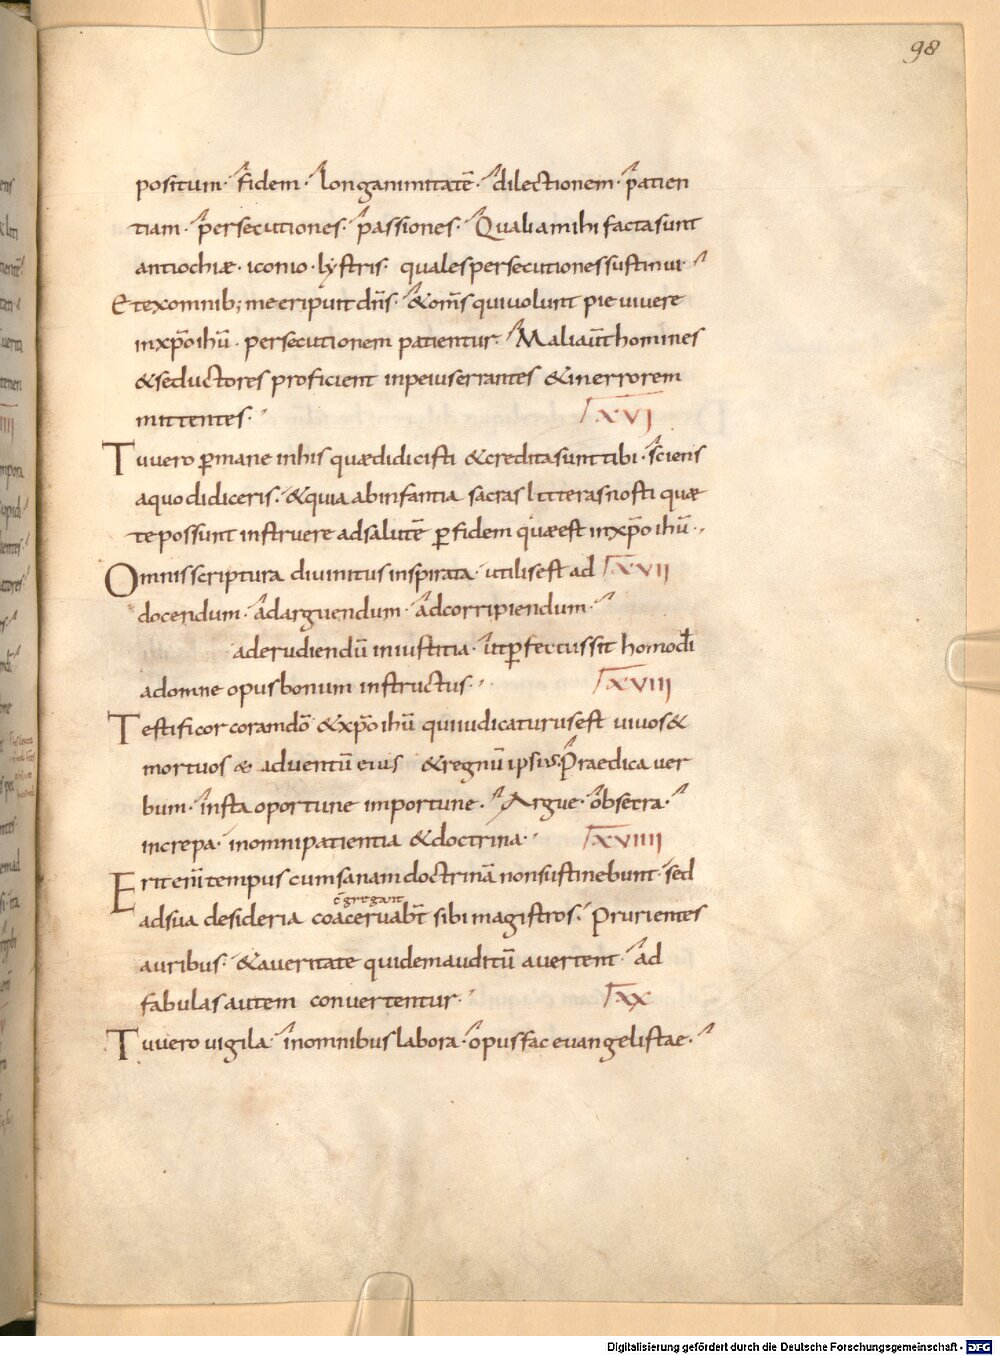 98
positum· fidem· longanimitatē· dilectionem· patien
tiam· persecutiones· passiones· Qualia mihi facta sunt
antiochiæ· iconio· lystris· quales persecutiones sustinui·
Et ex omnib; me eripuit dn̄s· & om̄s qui volunt pie vivere
in xp̄o ihū· persecutionem patientur· Mali aūt homines
& seductores proficient in peius errantes & in errorem
mittentes· XVI
Tu vero ꝑmane in his quæ didicisti & credita sunt tibi· sciens
a quo didiceris· & quia ab infantia sacras litteras nosti quæ
te possunt instruere ad salutē ꝑ fidem quæ est in xp̄o ihū·
Omnis scriptura divinitus inspirata· utilis est ad XVII
docendum· ad arguendum· ad corripiendum·
ad erudiendū in iustitia· ut ꝑfectus sit homo dī
ad omne opus bonum instructus· XVIII
Testificor coram dō & xp̄o ihū qui iudicaturus est vivos &
mortuos & adventū eius & regnū ipsius· Praedica ver
bum· insta oportune importune· Argue· obsecra·
increpa· in omni patientia & doctrina· XVIIII
Erit enī tempus cum sanam doctrinā non sustinebunt· sed
c̄gregant
ad sua desideria coacervab̄t sibi magistros· Prurientes
auribus· & a veritate quidem auditū avertent· ad
fabulas autem convertentur· XX
Tu vero vigila· in omnibus labora· opus fac evangelistae·
Digitalisierung gefördert durch die Deutsche Forschungsgemeinschaft - DFG